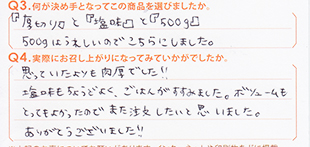 Q3.何が決め手となってこの商品を選びましたか。
『厚切り』と『塩味』と『500g』
500gはうれしいのでこちらにしました。
Q4.実際にお召し上がりになってみていかがでしたか。
思っていたよりも肉厚でした!!
塩味もちょうどよく、ごはんがすすみました。ボリュームも
とってもよかったのでまた注文したいと思いました。
ありがとうございました!!